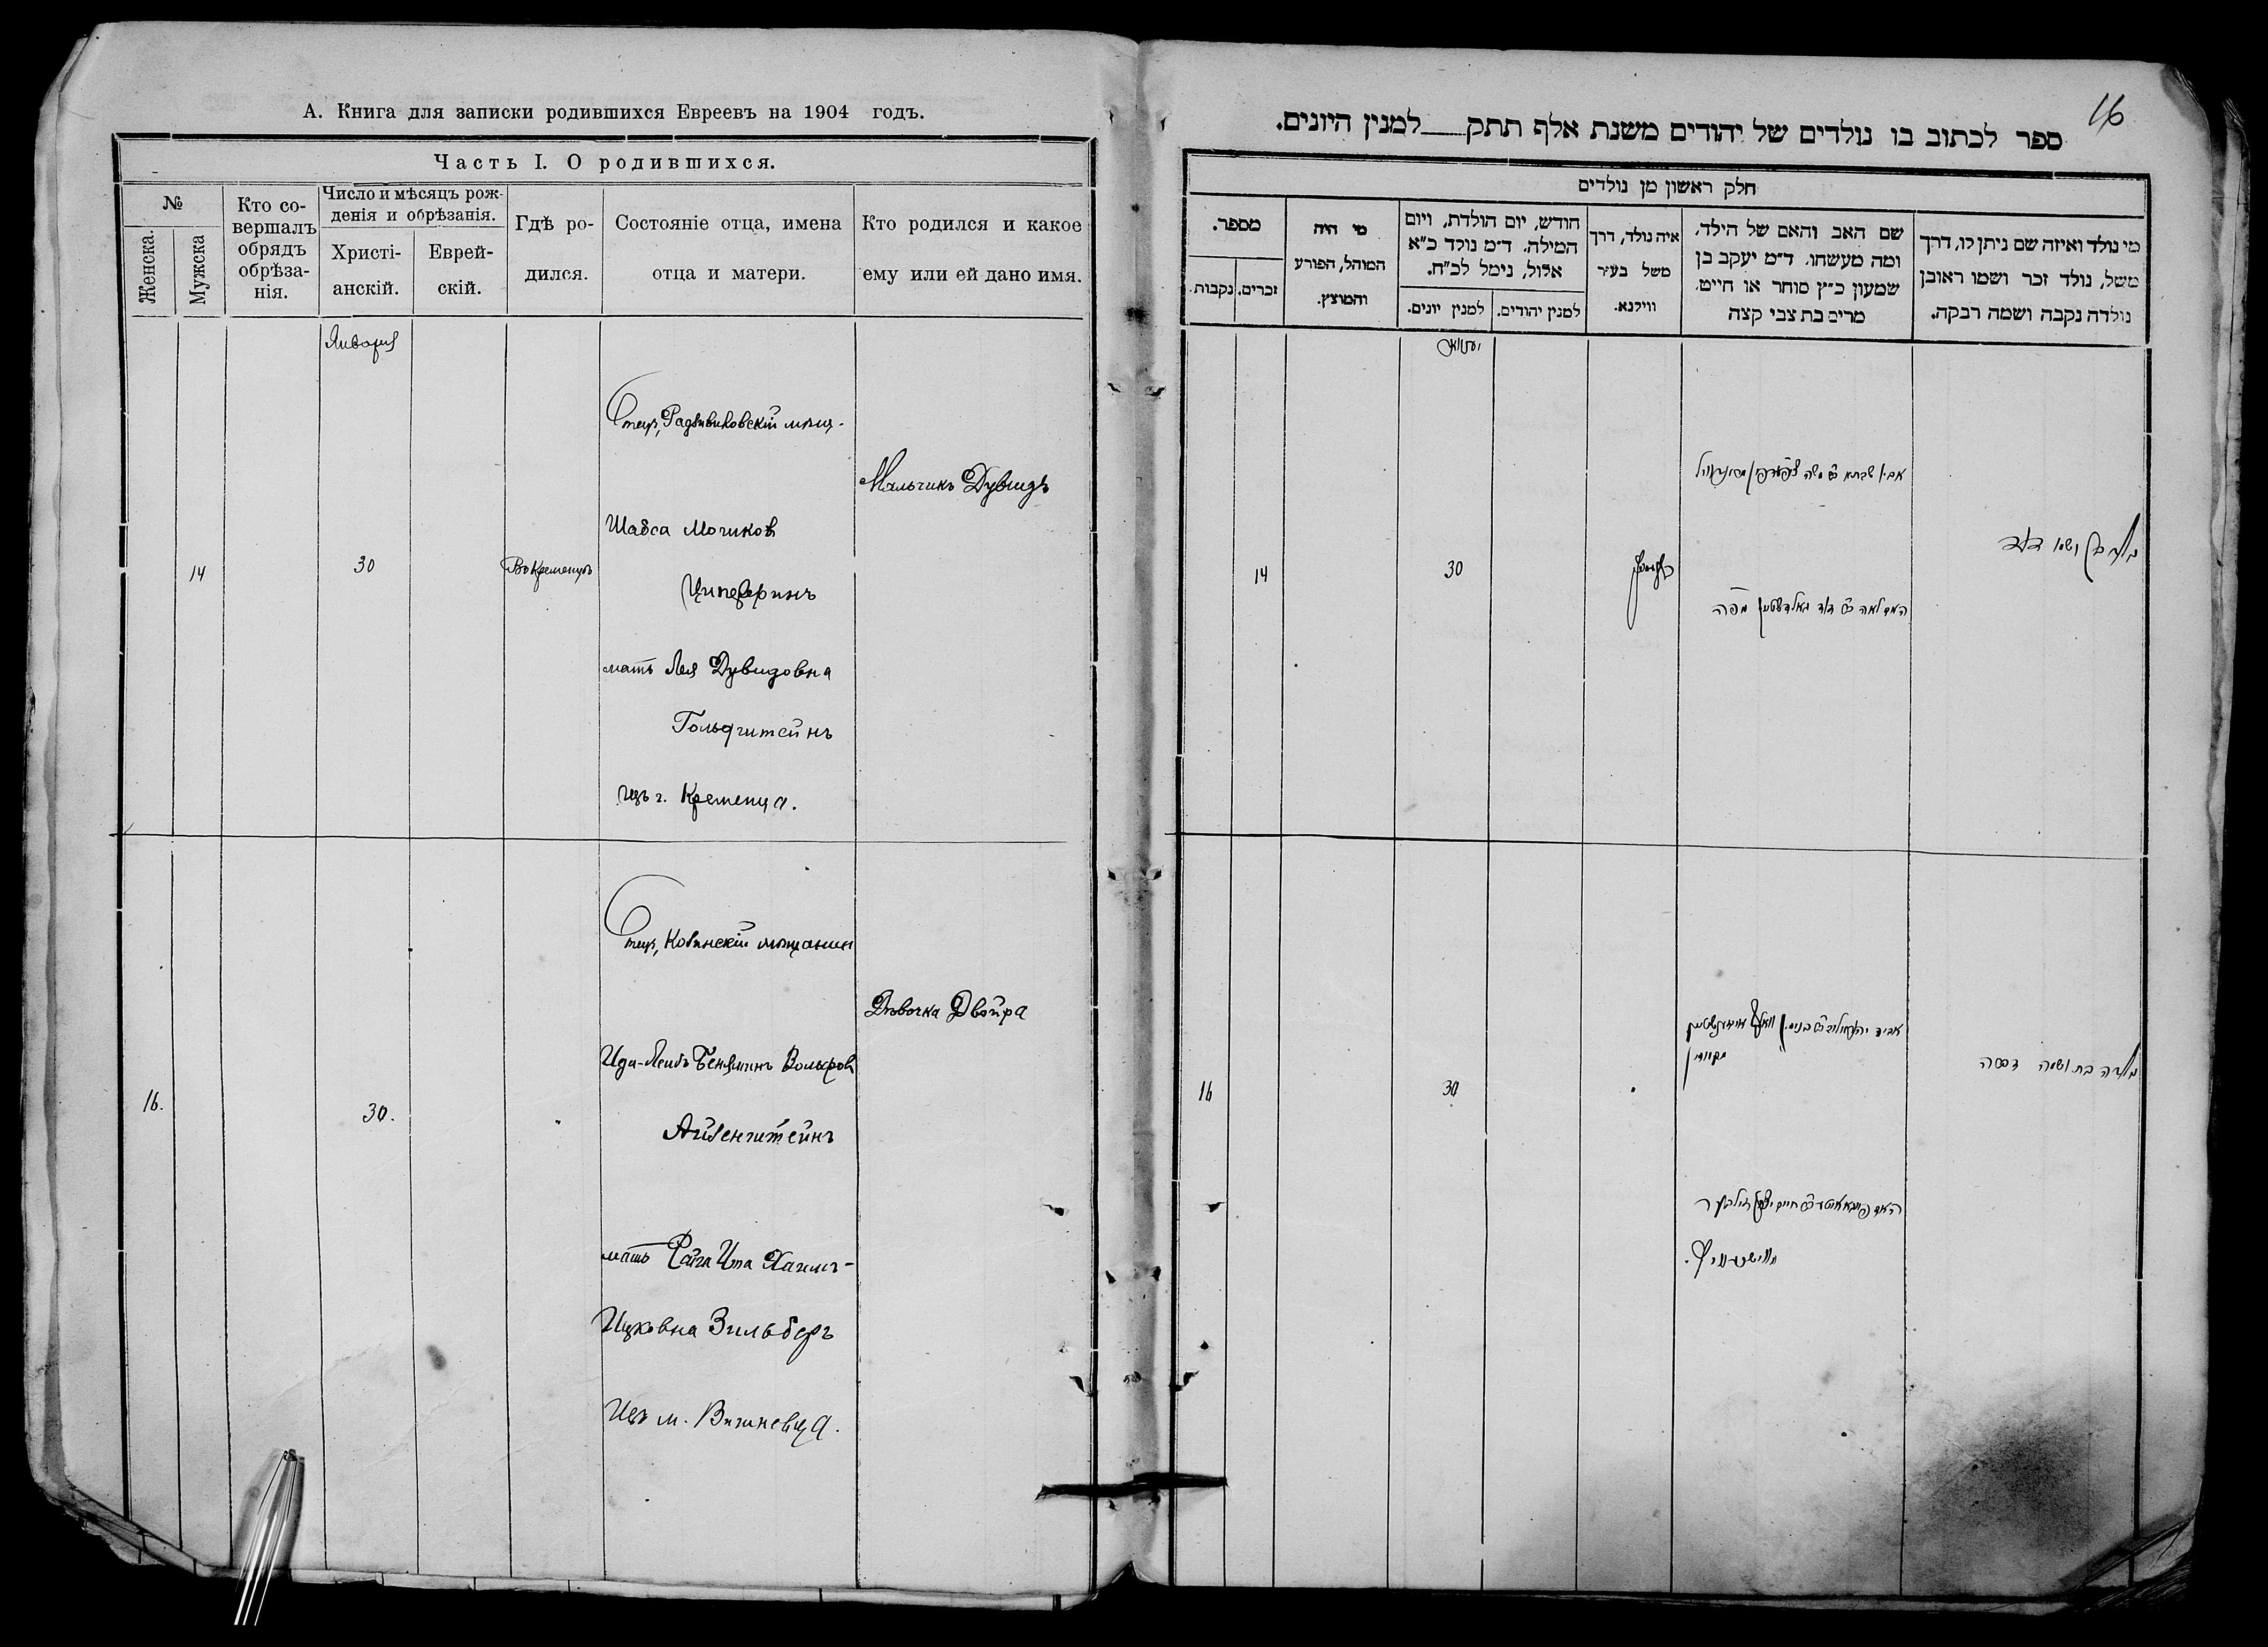 А. Книга для записки родившихся Евреевъ на 1904 годъ.
Часть I. О родившихся.
№
Женска.
Мужска
Кто со-
вершалъ
обрядъ
обрѣза-
нія.
Число и мѣсяцъ рож-
денія и обрѣзанія.
Христі-
анскій.
Еврей-
скій.
Гдѣ ро-
дился.
Состояніе отца, имена
отца и матери.
Кто родился и какое
ему или ей дано имя.
Января
14
30
Въ Кременцѣ
Отецъ, Радзивиловскій мѣщ.
Шабса Мошков
Циперфинъ
мать Лея Дувидовна
Гольдштейнъ
изъ г. Кременца.
Мальчикъ Дувидъ
16.
30.
Отецъ, Ковенскій мѣщанин
Ида-Лейбъ Беняминъ Вольфов
Айзенштейнъ
мать Файга Ита Хаимъ-
Ицковна Зильберъ
Изъ м. Вишневца.
Дѣвочка Двойра
16
ספר לכתוב בו נולדים של יהודים משנת אלף תתק למנין היונים.
חלק ראשון מן נולדים
מספר.
נקבות.
זכרים.
מי היה
המוהל, הפורע
והמוצץ.
חודש, יום הולדת, ויום
המילה. ד״מ נולד כ״א
אלול, נימל לכ״ח.
למנין יונים.
למנין יהודים.
איה נולד, דרך
משל בעיר
ווילנא.
שם האב והאם של הילד,
ומה מעשהו. ד״מ יעקב בן
שמעון כ״ץ סוחר או חייט.
מרים בת צבי קצה
מי נולד ואיזה שם ניתן לו, דרך
משל, נולד זכר ושמו ראובן
נולדה נקבה ושמה רבקה.
יענואר
14
30
נולד בן ושמו דוד
16
30
נולדה בת ושמה